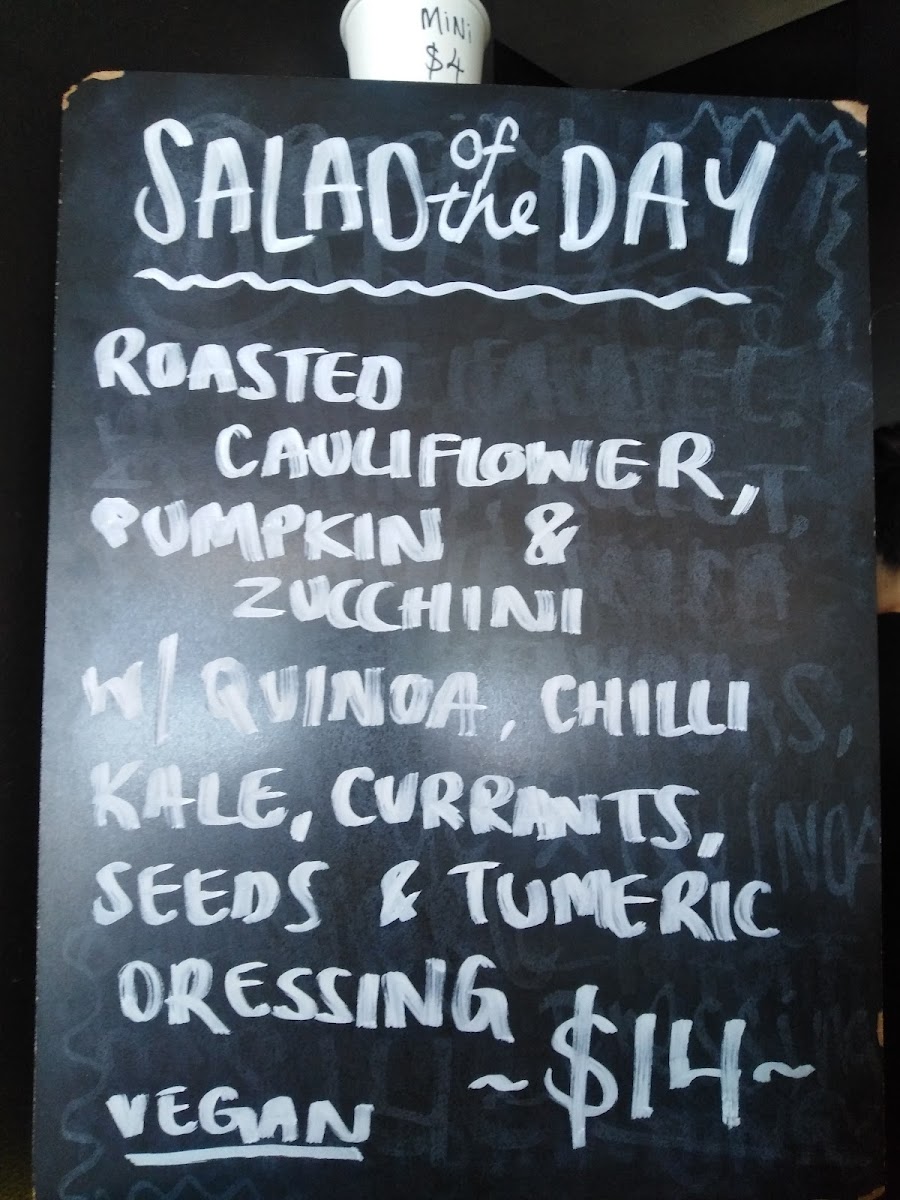 MINI
$4
SALAD of the DAY
ROASTED
CAULIFLOWER,
PUMPKIN &
ZUCCHINI
W/ QUINOA, CHILLI
KALE, CURRANTS,
SEEDS & TUMERIC
DRESSING
~$14~
VEGAN